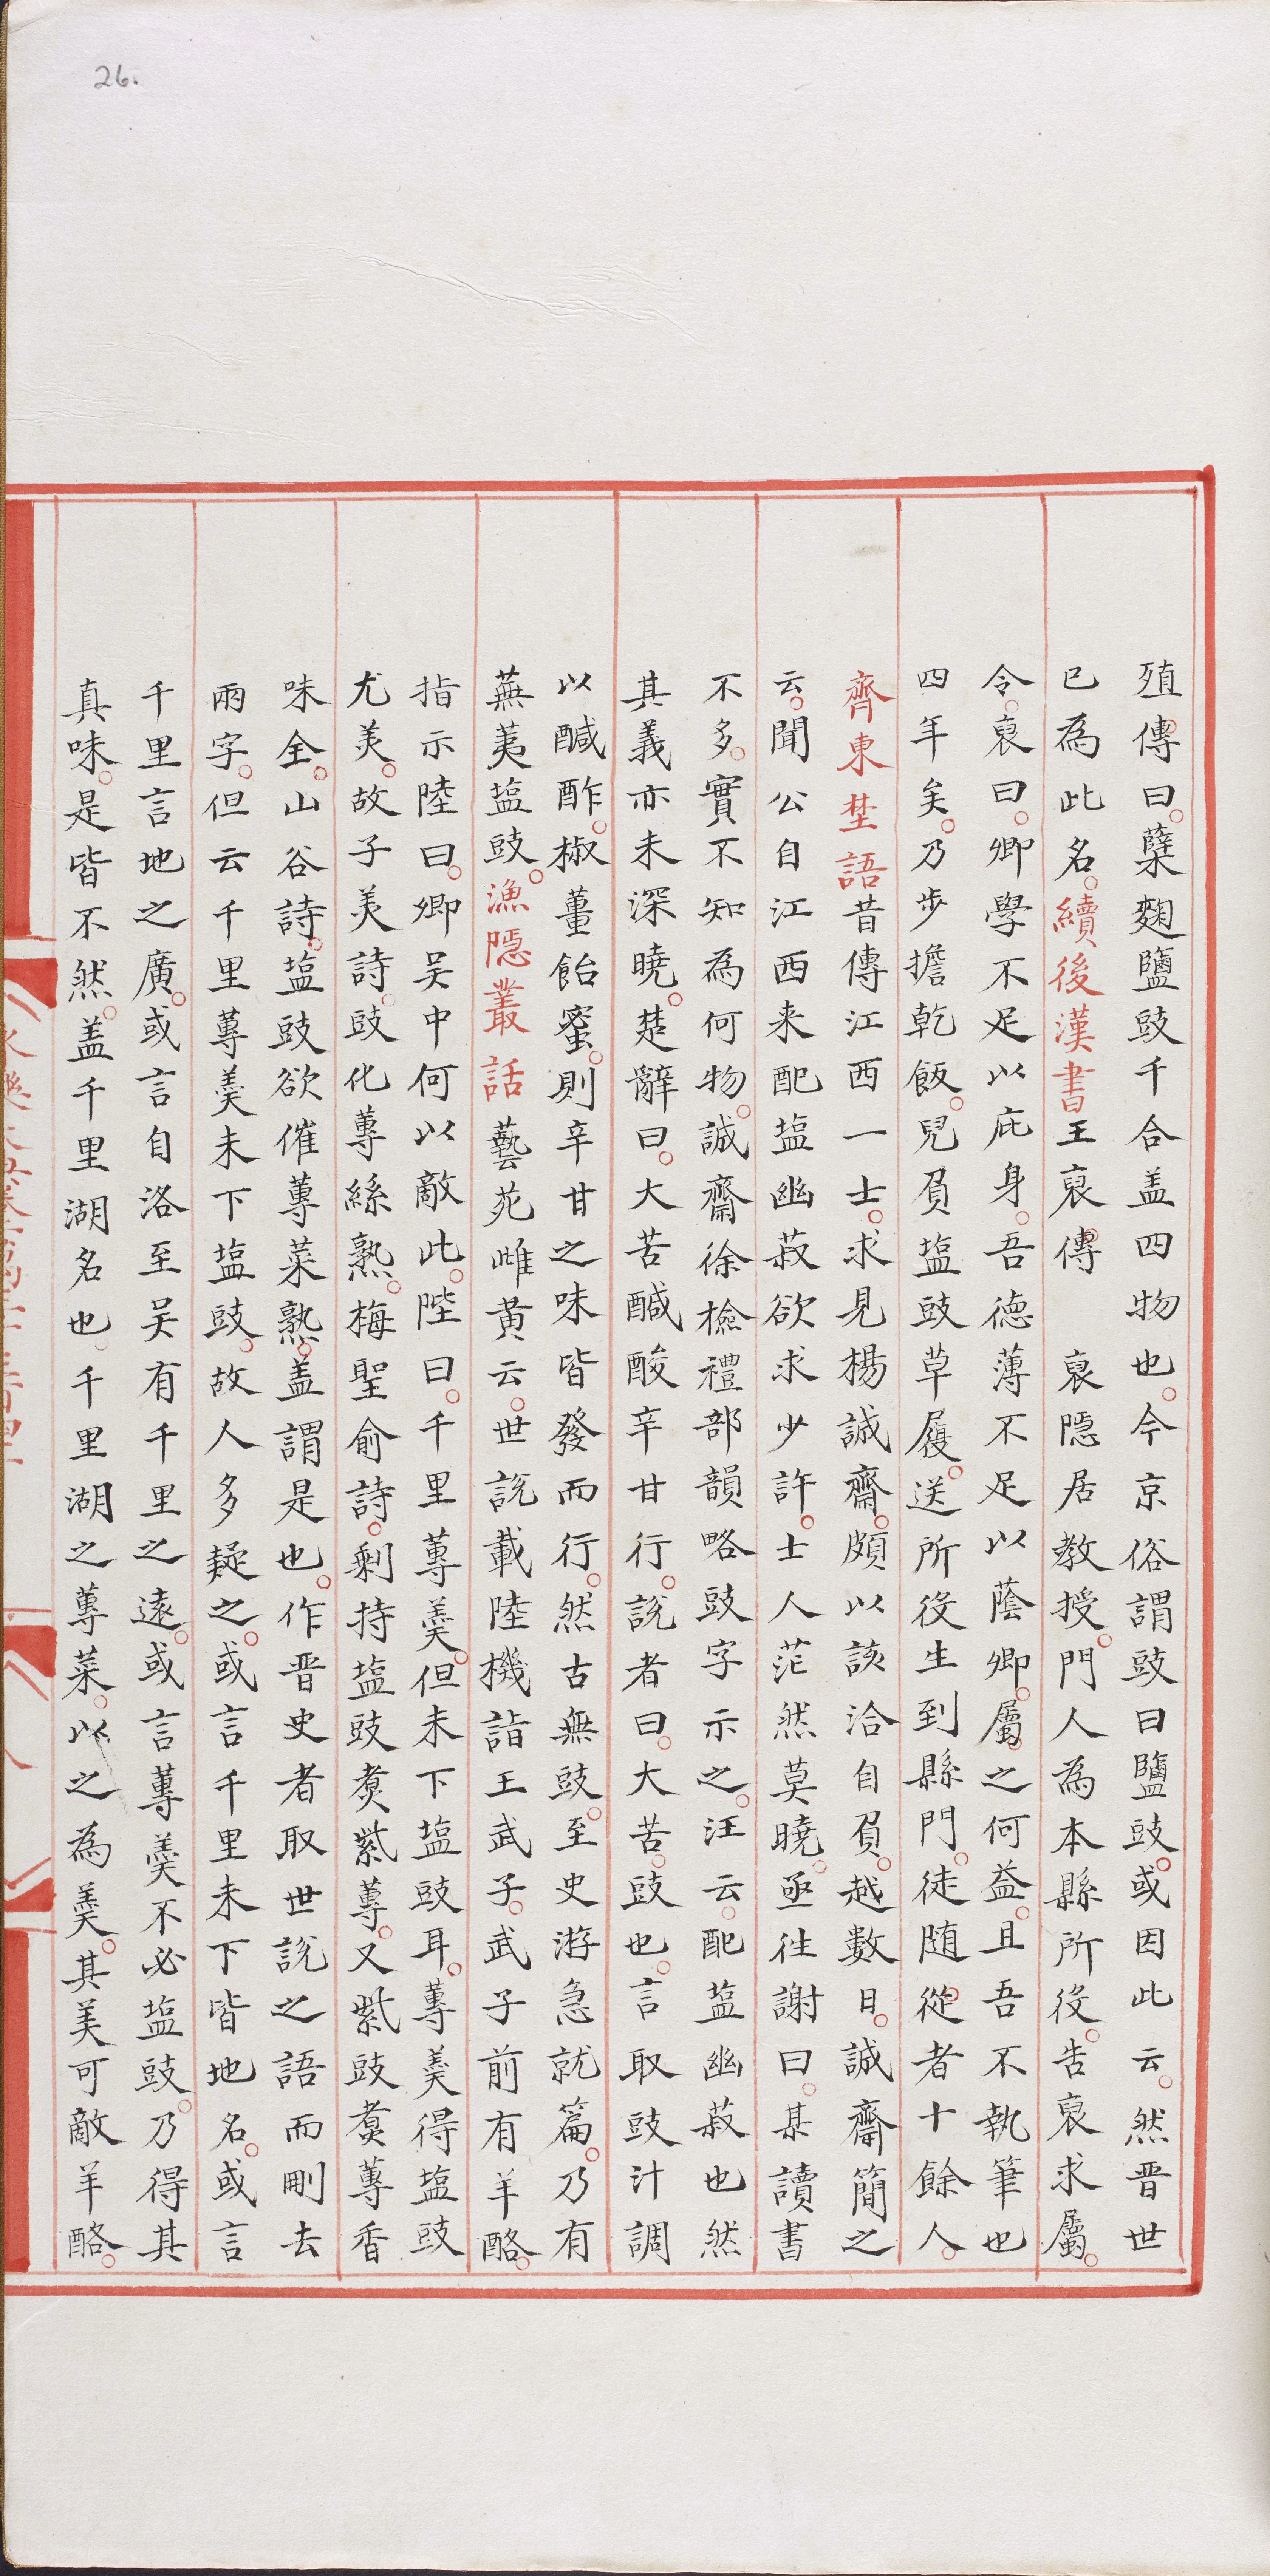 26.
殖傳曰。糵麴鹽豉千合盖四物也。今京俗謂豉曰鹽豉。或因此云。然晋世
已為此名。續後漢書王裒傳 裒隱居教授。門人為本縣所役。告裒求屬。
令。裒曰。卿學不足以庇身。吾德薄不足以蔭卿。屬之何益。且吾不執筆也
四年矣。乃步擔乾飯。兒負塩豉草履。送所役生到縣門。徒随從者十餘人。
齊東埜語昔傳江西一士。求見楊誠齋。頗以該洽自負。越數日。誠齋簡之
云。聞公自江西来配塩幽菽欲求少許。士人茫然莫曉。亟徃謝曰。某讀書
不多。實不知為何物。誠齋徐檢禮部韻略豉字示之。汪云。配塩幽菽也然
其義亦未深曉。楚辭曰。大苦醎酸辛甘行。說者曰。大苦。豉也。言取豉汁調
以醎酢。椒薑飴蜜。則辛甘之味皆發而行。然古無豉。至史游急就篇。乃有
蕪荑塩豉。漁隱叢話藝苑雌黄云。世說載陸機詣王武子。武子前有羊酪。
指示陸曰。卿吴中何以敵此。陸曰。千里蓴羮。但未下塩豉耳。蓴羮得塩豉
尤美。故子美詩。豉化蓴絲熟。梅聖俞詩。剩持塩豉煑紫蓴。又紫豉煑蓴香
味全。山谷詩。塩豉欲催蓴菜熟。盖謂是也。作晋史者取世說之語而刪去
兩字。但云千里蓴羮未下塩豉。故人多疑之。或言千里未下皆地名。或言
千里言地之廣。或言自洛至吴有千里之遠。或言蓴羮不必塩豉。乃得其
真味。是皆不然。盖千里湖名也。千里湖之蓴菜。以之為羮。其美可敵羊酪。